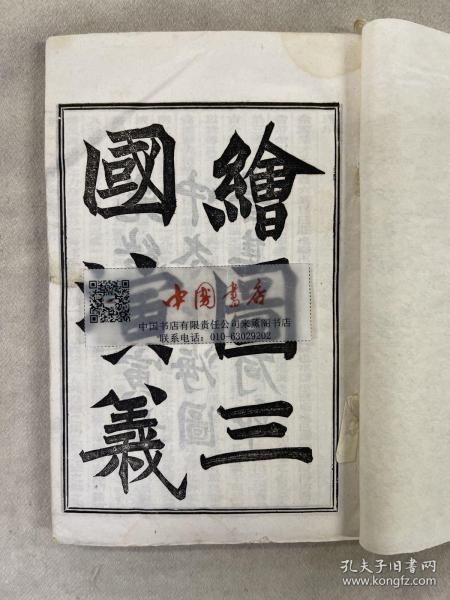 繪圖三
國演義
中国书店
中国书店有限责任公司来薰阁书店
联系电话：010-63029202
孔夫子旧书网
www.kongfz.com